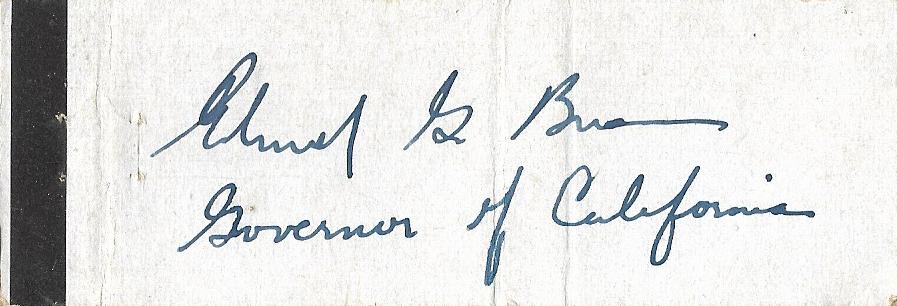 Edmund G. Brown
Governor of California